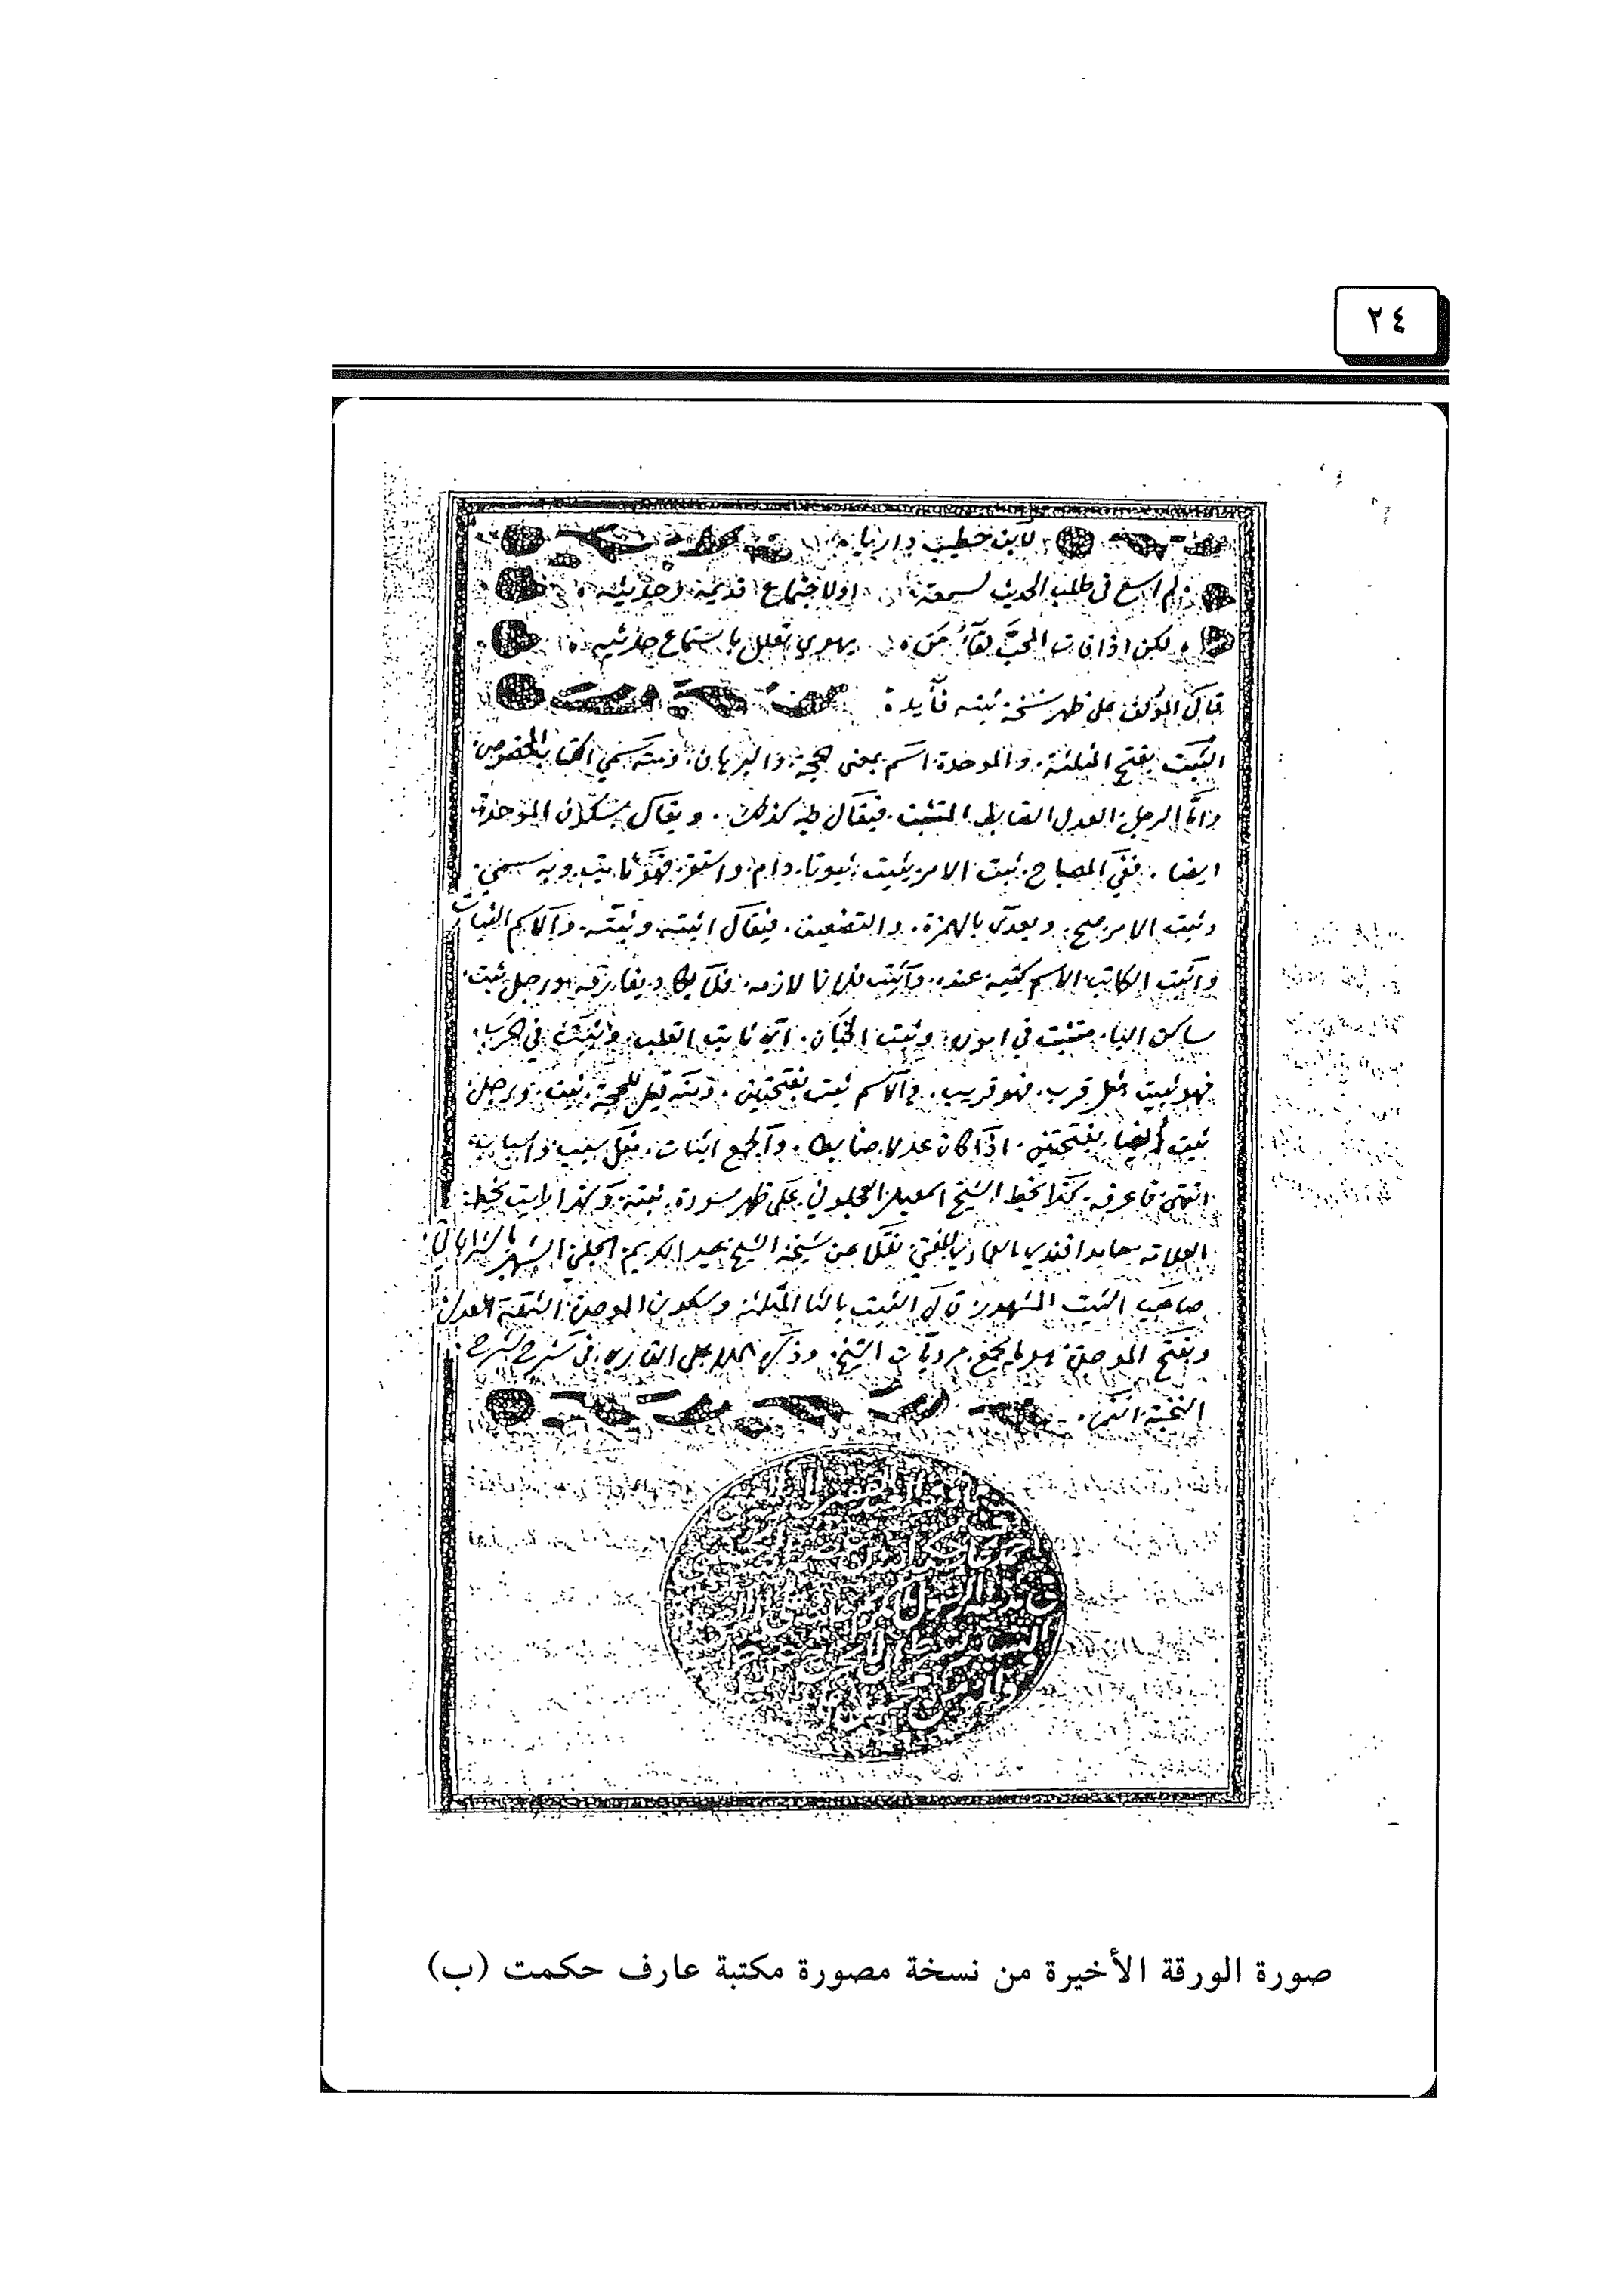 ٢٤
لابن خطيب داريا
لم اسع في طلب الحديث لسمعة او لاجتماع قديمه وحديثه
لكن اذا فات المحب لقاء من يهوى تعلل باستماع حديثه
قال المؤلف على ظهر نسخة ثبته فأيدة
الثبت بفتح المثلثة والموحدة اسم بمعنى الحجة والبرهان ومنه سمي الكتاب المخصوص
واما الرجل العدل الضابط المتثبت فيقال فيه كذلك ويقال بسكون الموحدة
ايضا ففي المصباح ثبت الامر يثبت ثبوتا دام واستقر فهو ثابت وبه سمي
وثبت الامر صح ويعدى بالهمزة والتضعيف فيقال اثبته وثبته والاسم الثبات
واثبت الكاتب الاسم كتبه عنده واثبت فلانا لازمه فلا يكاد يفارقه ورجل ثبت
ساكن البا متثبت في اموره وثبت الجنان اي ثابت القلب وثبت في الحرب
فهو ثبيت مثل قرب فهو قريب والاسم ثبت بفتحتين ومنه قيل للحجة ثبت ورجل
ثبت ايضا بفتحتين اذا كان عدلا ضابطا والجمع اثبات مثل سبب واسباب
انتهى فاعرفه كذا بخط الشيخ اسمعيل العجلوني على ظهر مسودة ثبته وكذا رايت بخط
العلامة حامد افندي العمادي المفتي نقلا عن نسخة الشيخ عبد الكريم الحلبي الشهير بالشراباتي
صاحب الثبت المشهور قال الثبت بالثا المثلثة وسكون الموحدة الثقة العدل
وبفتح الموحدة هو ما يجمع مرويات الشيخ وذكره المنلا على القاري في شرح شرح
النخبة انتهى
صورة الورقة الأخيرة من نسخة مصورة مكتبة عارف حكمت (ب)